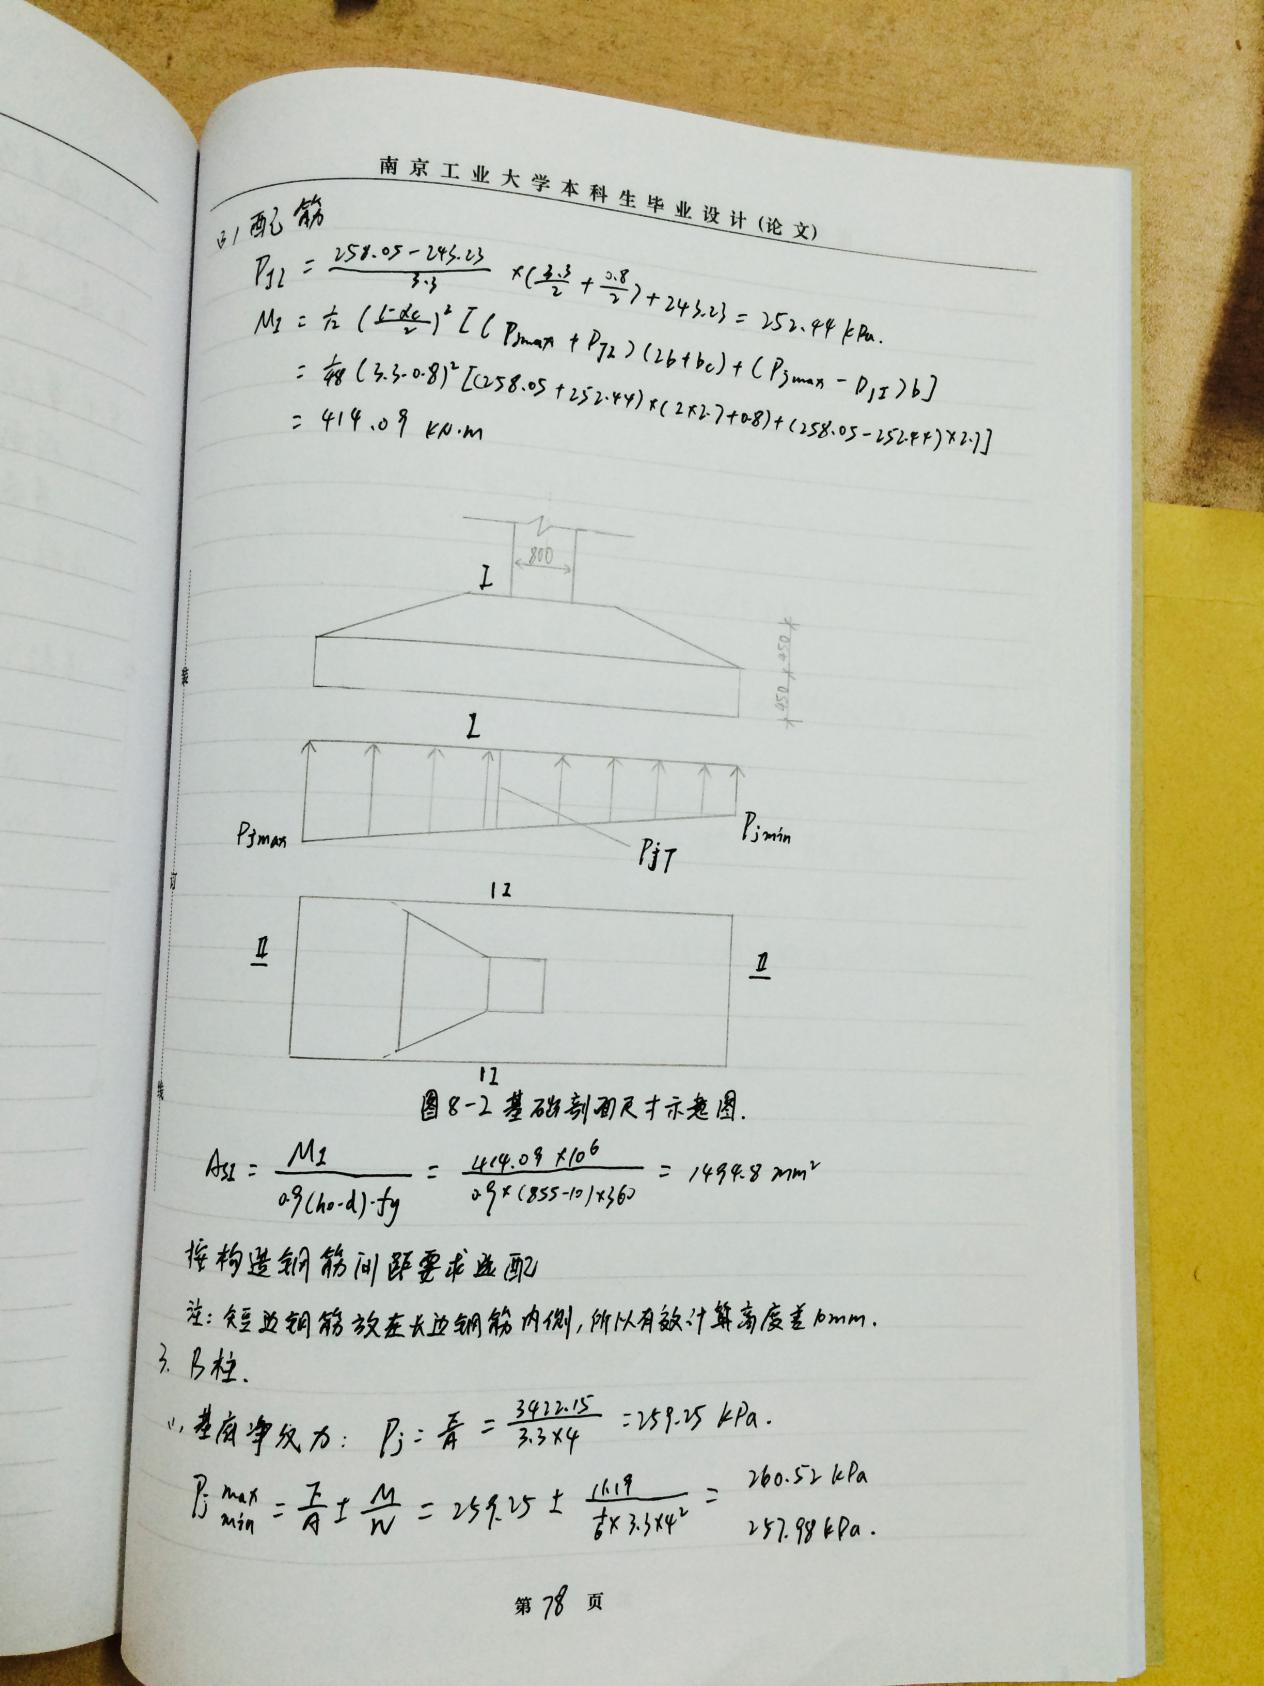 南京工业大学本科生毕业设计(论文)
(3) 配筋
PjI = (258.05-243.23)/3.3 ×(3.3/2 + 0.8/2)+243.23 = 252.44 kPa.
MI = 1/12 ((l-ac)/2)² [(Pjmax + PjI)(2b+bc)+(Pjmax - PjI)b]
= 1/48 (3.3-0.8)² [(258.05+252.44)×(2×2.7+0.8)+(258.05-252.44)×2.7]
= 414.09 kN·m
800
I
450 450
I
Pjmax
PjI
Pjmin
I I
II
II
I I
图8-2 基础剖面尺寸示意图.
AsI = MI/(0.9(h0-d)·fy) = (414.09×10⁶)/(0.9×(855-10)×360) = 1494.8 mm²
按构造钢筋间距要求选配
注: 短边钢筋放在长边钢筋内侧, 所以有效计算高度差10mm.
3. B柱.
(1) 基底净反力: Pj = F/A = 3422.15/(3.3×4) = 259.25 kPa.
Pj max min = F/A ± M/W = 259.25 ± 11.19/(1/6×3.3×4²) = 260.52 kPa
257.98 kPa.
装
订
线
第 78 页